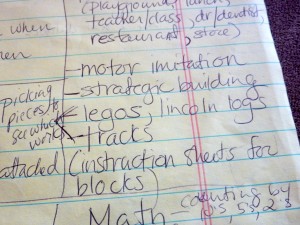 (playground, lunch,
teacher/class, dr/dentist,
restaurant, store)
when
- motor imitation
- strategic building
picking
pieces to
see what
works
- legos, lincoln logs
- tracks
attached
(instruction sheets for
blocks)
Math - counting by
5's, 2's